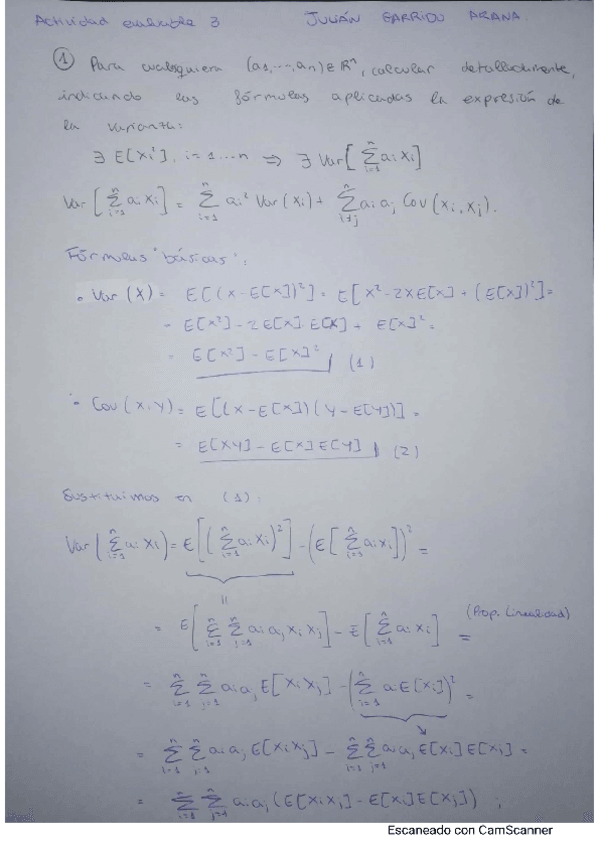 Actividad evaluable 3 JULIÁN GARRIDO ARANA
① Para cualesquiera (a1,...,an) ∈ ℝⁿ, calcular detalladamente,
indicando las fórmulas aplicadas la expresión de
la varianza:
∃ E[Xi²], i=1...n ⇒ ∃ Var[∑ᵢ₌₁ⁿ ai Xi]
Var[∑ᵢ₌₁ⁿ ai Xi] = ∑ᵢ₌₁ⁿ ai² Var(Xi) + ∑ⁿᵢ≠ⱼ ai aj Cov(Xi, Xj).
Fórmulas "básicas":
• Var(X) = E[(X-E[X])²] = E[X²-2XE[X]+(E[X])²] =
= E[X²]-2E[X]·E[X]+ E[X]² =
= E[X²]-E[X]² (1)
• Cov(X,Y) = E[(X-E[X])(Y-E[Y])] =
= E[XY]-E[X]E[Y] (2)
Sustituimos en (1):
Var(∑ᵢ₌₁ⁿ ai Xi) = E[(∑ᵢ₌₁ⁿ ai Xi)²] - (E[∑ᵢ₌₁ⁿ ai Xi])² =
= E[∑ᵢ₌₁ⁿ ∑ⱼ₌₁ⁿ ai aj Xi Xj] - E[∑ᵢ₌₁ⁿ ai Xi] = (Prop. Linealidad)
= ∑ᵢ₌₁ⁿ ∑ⱼ₌₁ⁿ ai aj E[Xi Xj] - (∑ᵢ₌₁ⁿ ai E[Xi])² =
= ∑ᵢ₌₁ⁿ ∑ⱼ₌₁ⁿ ai aj E[Xi Xj] - ∑ᵢ₌₁ⁿ ∑ⱼ₌₁ⁿ ai aj E[Xi] E[Xj] =
= ∑ᵢ₌₁ⁿ ∑ⱼ₌₁ⁿ ai aj (E[Xi Xj] - E[Xi] E[Xj]) ;
Escaneado con CamScanner